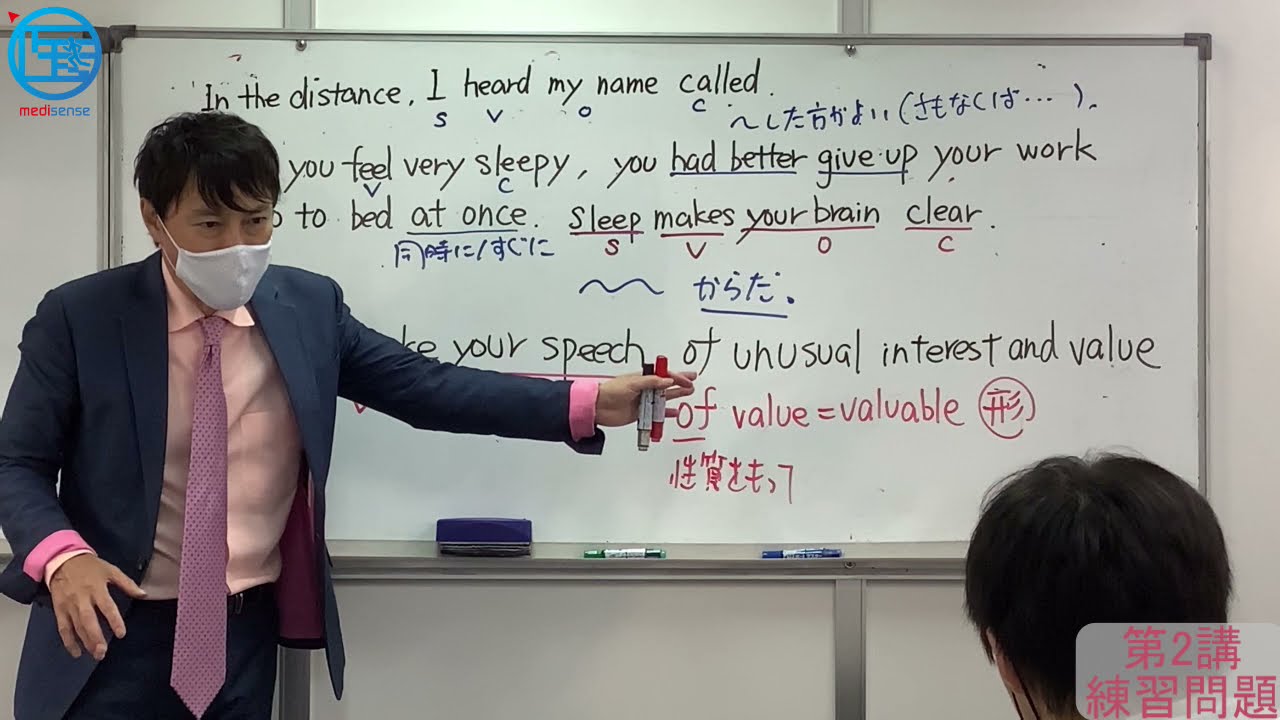 medisense
In the distance, I heard my name called.
S V O C
〜した方がよい(さもなくば…)。
you feel very sleepy, you had better give up your work
V C
to bed at once. Sleep makes your brain clear.
同時に/すぐに S V O C
〜〜 からだ。
ke your speech of unusual interest and value
V of value = valuable 形
性質をもって
第2講
練習問題